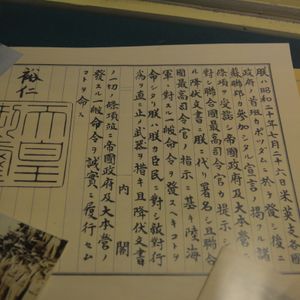 朕ハ昭和二十年七月二十六日米英支各國
政府ノ首班カポツダムニ於テ發シ後ニ
蘇聯邦カ參加シタル宣言ノ掲クル諸
條項ヲ受諾シ帝國政府及大本營ニ
對シ聯合國最高司令官カ提示シタ
ル降伏文書ニ朕ニ代リ署名シ且聯合
國最高司令官ノ指示ニ基キ陸海
軍ニ對スル一般命令ヲ發スヘキコトヲ
命シタリ朕ハ朕カ臣民ニ對シ敵對行
爲ヲ直ニ止メ武器ヲ措キ且降伏文書
内閣
ノ一切ノ條項竝ニ帝國政府及大本營ノ
發スル一般命令ヲ誠實ニ履行セム
コトヲ命ス
裕仁
天皇